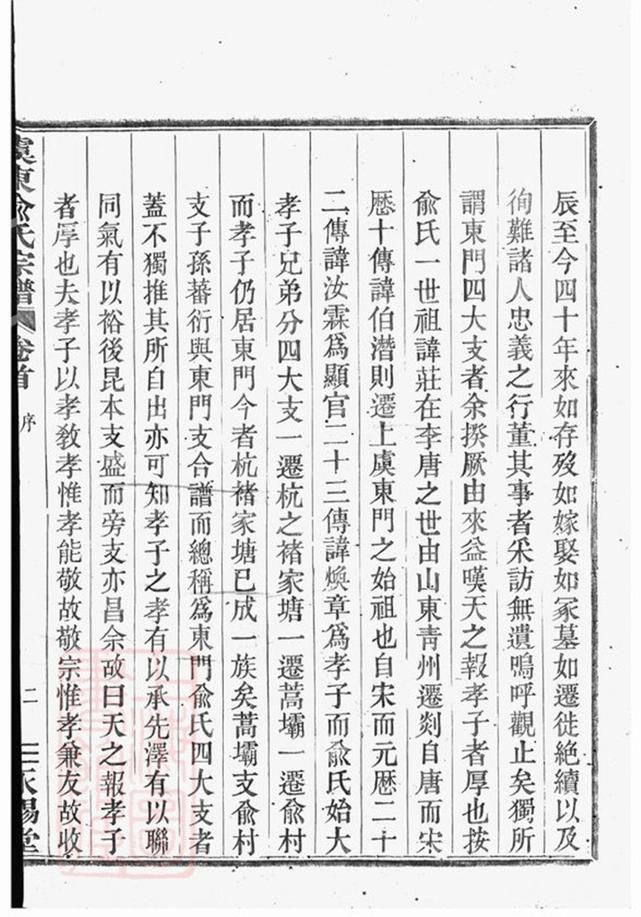 辰至今四十年來如存歿如嫁娶如冢墓如遷徙絶續以及
徇難諸人忠義之行董其事者采訪無遺嗚呼觀止矣獨所
謂東門四大支者余揆厥由來益嘆天之報孝子者厚也按
兪氏一世祖諱莊在李唐之世由山東青州遷剡自唐而宋
歷十傳諱伯潛則遷上虞東門之始祖也自宋而元歷二十
二傳諱汝霖爲顯官二十三傳諱煥章爲孝子而兪氏始大
孝子兄弟分四大支一遷杭之褚家塘一遷蒿壩一遷兪村
而孝子仍居東門今者杭褚家塘已成一族矣蒿壩支兪村
支子孫蕃衍與東門支合譜而總稱爲東門兪氏四大支者
蓋不獨推其所自出亦可知孝子之孝有以承先澤有以聯
同氣有以裕後昆本支盛而旁支亦昌余故曰天之報孝子
者厚也夫孝子以孝敎孝惟孝能敬故敬宗惟孝兼友故收
虞東兪氏宗譜 卷首 序 二 永錫堂